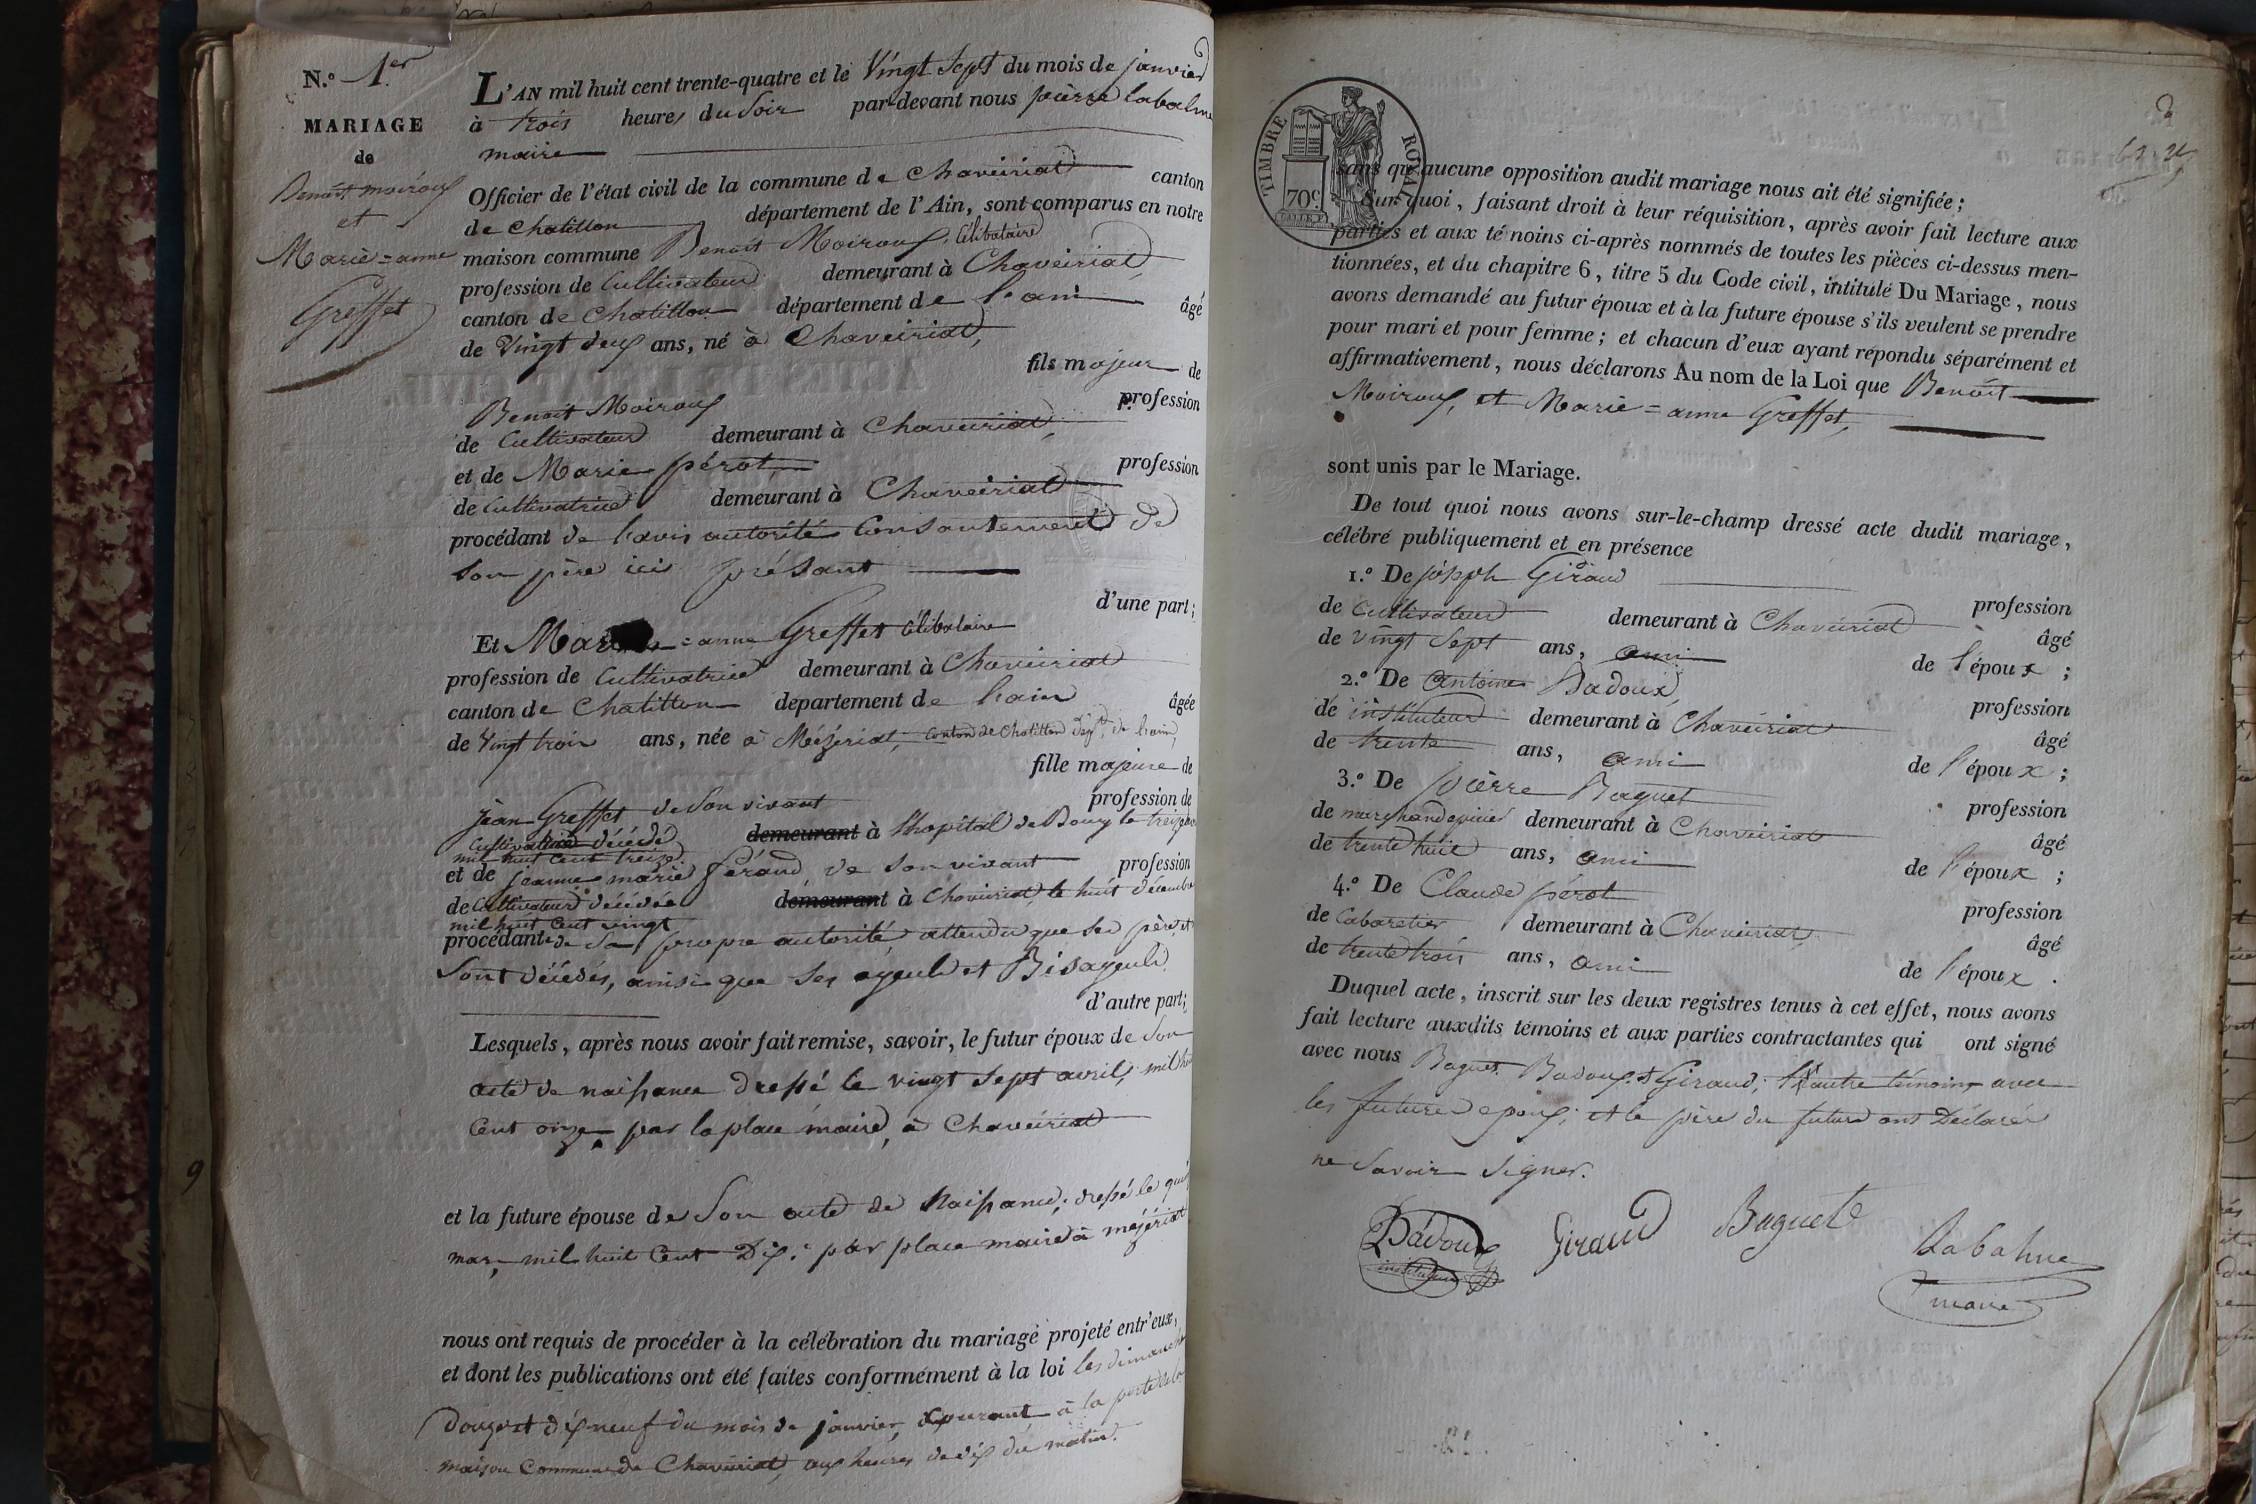 N.º 1er
MARIAGE
de
Benoit Moiroux
et
Marie=anne
Greffet
L'AN mil huit cent trente-quatre et le Vingt Sept du mois de janvier
à trois heures du Soir par-devant nous pierre labalme
maire
Officier de l'état civil de la commune de Chaveiriat canton
de Chatillon département de l'Ain, sont comparus en notre
maison commune Benoit Moiroux, Célibataire
profession de Cultivateur demeurant à Chaveiriat,
canton de Chatillon département de l'ain âgé
de Vingt deux ans, né à Chaveiriat,
fils majeur de
Benoit Moiroux profession
de Cultivateur demeurant à Chaveiriat,
et de Marie pérot, profession
de Cultivatrice demeurant à Chaveiriat
procédant de l'avis autorité Consantement de
son père ici présant
d'une part;
Et Marie=anne Greffet Célibataire
profession de Cultivatrice demeurant à Chaveiriat
canton de Chatillon département de l'ain âgée
de Vingt trois ans, née à Mézériat, Canton de Chatillon dépt. de l'ain,
fille majeure de
jean Greffet de Son vivant profession de
Cultivateur décédé demeurant à l'hopital de Bourg le treize
mil huit Cent treize.
et de jeanne marie féraud de son vivant profession
de Cultivateur décédée demeurant à Chaveiriat, le huit décembre
mil huit Cent vingt
procédante de Sa propre autorité attendu que Ses père et
Sont décédés, ainsi que Ses ayeuls et Bisayeuls.
d'autre part;
Lesquels, après nous avoir fait remise, savoir, le futur époux de Son
acte de naissance dressé le vingt Sept avril, mil hui
Cent onze, par laplace maire, à Chaveiriat
et la future épouse de Son acte de Naissance, dressé le quin
mars, mil huit Cent Dix, par place maire à mézériat
nous ont requis de procéder à la célébration du mariage projeté entr'eux,
et dont les publications ont été faites conformément à la loi les dimanche
douze et dix neuf du mois de janvier, Courant à la porte de la
maison Commune de Chaveiriat, aux heures de dix du matin.
TIMBRE ROYAL
70c.
sans qu'aucune opposition audit mariage nous ait été signifiée;
Sur quoi, faisant droit à leur réquisition, après avoir fait lecture aux
parties et aux témoins ci-après nommés de toutes les pièces ci-dessus men-
tionnées, et du chapitre 6, titre 5 du Code civil, intitulé Du Mariage, nous
avons demandé au futur époux et à la future épouse s'ils veulent se prendre
pour mari et pour femme; et chacun d'eux ayant répondu séparément et
affirmativement, nous déclarons Au nom de la Loi que Benoit
Moiroux, et Marie=anne Greffet,
sont unis par le Mariage.
De tout quoi nous avons sur-le-champ dressé acte dudit mariage,
célébré publiquement et en présence
1.º De joseph Giraud
profession
de Cultivateur demeurant à Chaveiriat âgé
de vingt Sept ans, ami de l'époux;
2.º De Antoine Badoux, profession
de instituteur demeurant à Chaveiriat âgé
de trente ans, ami de l'époux;
3.º De pierre Baguet profession
de marchand epicier demeurant à Chaveiriat âgé
de trente huit ans, ami de l'époux;
4.º De Claude pérot profession
de Cabaretier demeurant à Chaveiriat, âgé
de trente trois ans, ami de l'époux.
Duquel acte, inscrit sur les deux registres tenus à cet effet, nous avons
fait lecture auxdits témoins et aux parties contractantes qui ont signé
avec nous Baguet. Badoux. & Giraud; l'autre témoin, avec
les future epoux, et le père du futur ont déclarés
ne Savoir Signer.
Badoux Giraud Baguet Labalme
instituteur maire